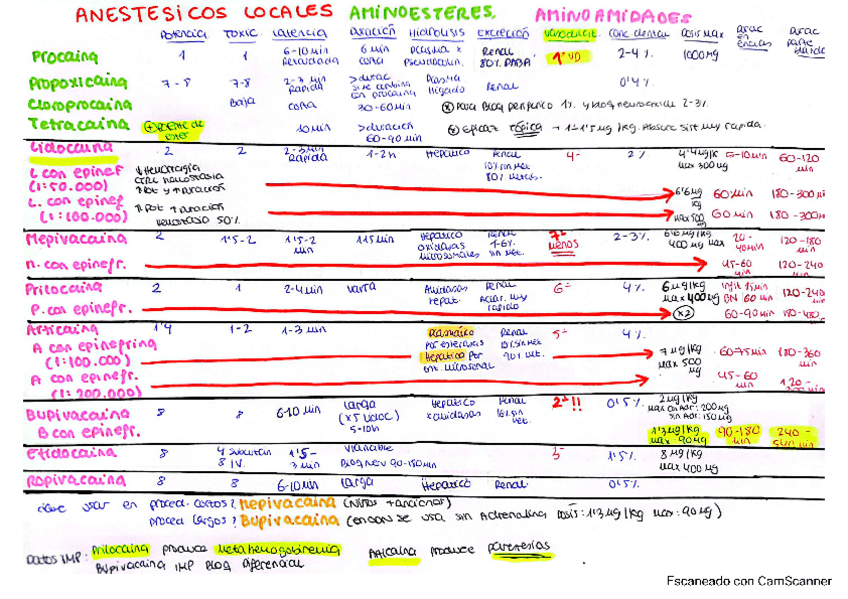 ANESTESICOS LOCALES AMINOESTERES. AMINOAMIDADES
POTENCIA TOXIC. LATENCIA DURACIÓN HIDROLISIS EXCRECIÓN VASODILAT. CONC DENTAL DOSIS MAX DURAC EN ENCIAS DURAC PARTE BLANDA
Procaina 1 1 6-10min Retardada 6 min corta plasma x Pseudocolin. Renal 80% PABA 1º VD 2-4% 1000mg
Propoxicaina 7-8 7-8 2-3 min Rapida >durac si se combina en procaina Plasma Higado Renal 0'4%
Cloroprocaina Baja corta 30-60min Para Bloq periferico 1% y bloq neuroaxial 2-3%
Tetracaina + potente de ester 10min >duración 60-90 min Eficaz Tópica → 1-1'5mg/kg. Absorc sist muy rapida.
Lidocaina 2 2 2-3min rapida 1-2h Hepatico Renal 10% sin met. 80% metab. 4- 2% 4'4mg/k max 300mg 5-10min 60-120 min
L con epinef (1:50.000) ↓ Hemorragia 6'6mg kg 60min 180-300min
L. con epinef (1:100.000) ↑ Pot ↑ duración 50% max 500 mg 60 min 180-300m
Mepivacaina 2 1'5-2 1'5-2 min 115min Hepatico oxidasas microsomales Renal 1-6% sin met. 7º menos 2-3% 6'6mg/kg 400mg max 20-40min 120-180 min
M. con epinefr. 45-60 min 120-240 min
Prilocaina 2 1 2-4min Corta Amidasas hepat. Renal Aclar. muy rapido 6- 4% 6mg/kg max 400mg Infilt 15min BN 60 min 120-240
P. con epinefr. (x2) 60-90min 180-480
Articaina 1'4 1-2 1-3 min Plasmático por esterasas Renal 5- 4%
A con epinefrina (1:100.000) Hepatico por enz. microsomal 7mg/kg max 500 mg 60-75min 180-360 min
A con epinefr. (1:200.000) 45-60 min
Bupivacaina 8 8 6-10min larga (x5 lidoc) 5-10h Hepatico x amidasas Renal 16% sin met. 2ª!! 0'5% 2mg/kg max con Adr: 200mg sin Adr: 150mg
B con epinefr. 1'3mg/kg max 90mg 90-180 min 240-540 min
Etidocaina 8 4 subcutan 8 IV. 1'5-3 min Variable Bloq Nerv 90-150min 3- 1'5% 8mg/kg max 400mg
Ropivacaina 8 8 6-10min larga Hepatico Renal 0'5%
usar en proced. cortos? Mepivacaina (niños + ancianos)
proced largos? Bupivacaina (en odon se usa sin Adrenalina dosis: 1'3mg/kg max: 90mg)
Datos IMP: Prilocaina produce Metahemoglobinemia Articaina produce parestesias
Bupivacaina IMP Bloq diferencial
Escaneado con CamScanner